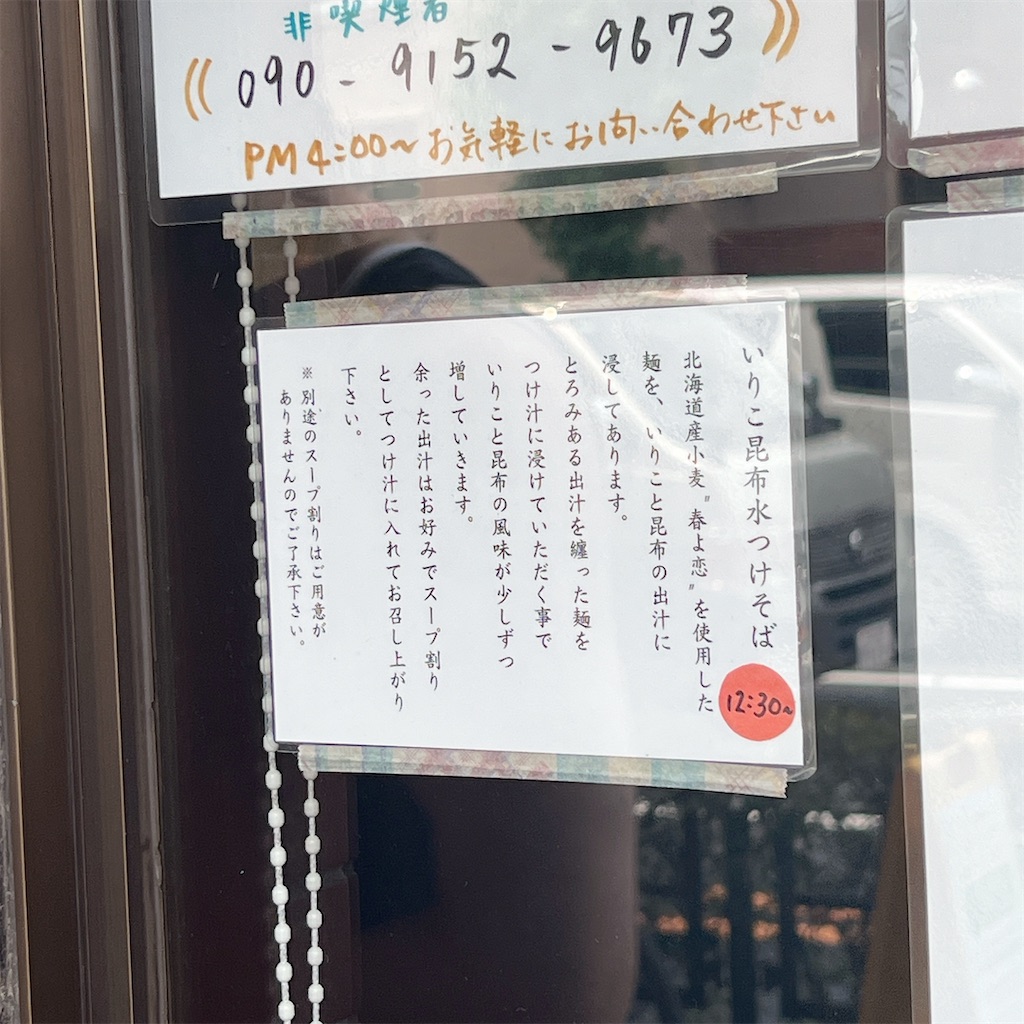 非喫煙者
090-9152-9673
PM4:00〜お気軽にお問い合わせ下さい
いりこ昆布水つけそば
12:30〜
北海道産小麦〝春よ恋〟を使用した
麺を、いりこと昆布の出汁に
浸してあります。
とろみある出汁を纏った麺を
つけ汁に浸けていただく事で
いりこと昆布の風味が少しずつ
増していきます。
余った出汁はお好みでスープ割り
としてつけ汁に入れてお召し上がり
下さい。
※別途のスープ割りはご用意が
ありませんのでご了承下さい。